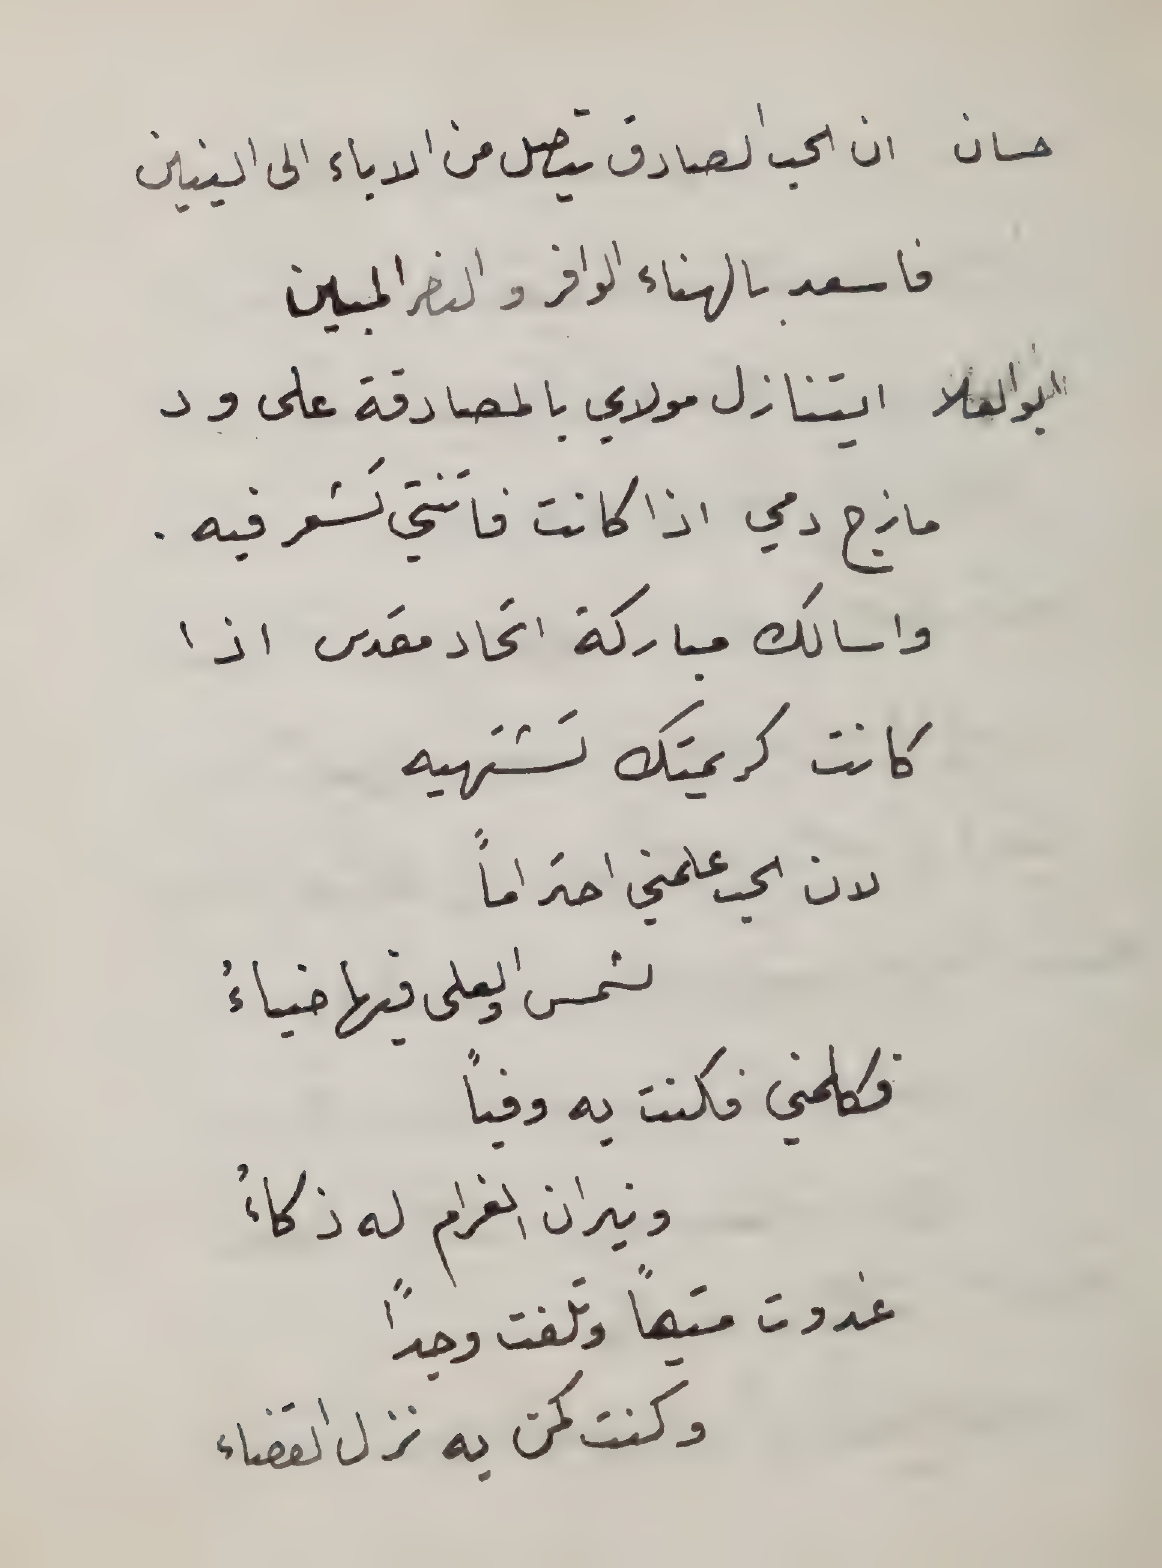 حسان ان الحب الصادق يتصل من الاباء الى البنين
فاسعد بالهناء الوافر والنصر المبين
ابو العلا ايتنازل مولاي بالمصادقة على ود
مازج دمي اذا كانت فاتنتي تشعر فيه .
واسالك مباركة اتحاد مقدس اذا
كانت كريمتك تشتهيه
لان الحب علمني احتراماً
لشمس العلى فيها ضياءُ
فكلمني فكنت به وفياً
ونيران الغرام له ذكاءُ
غدوت متيماً وتلفت وجداً
وكنت كمن به نزل القضاء